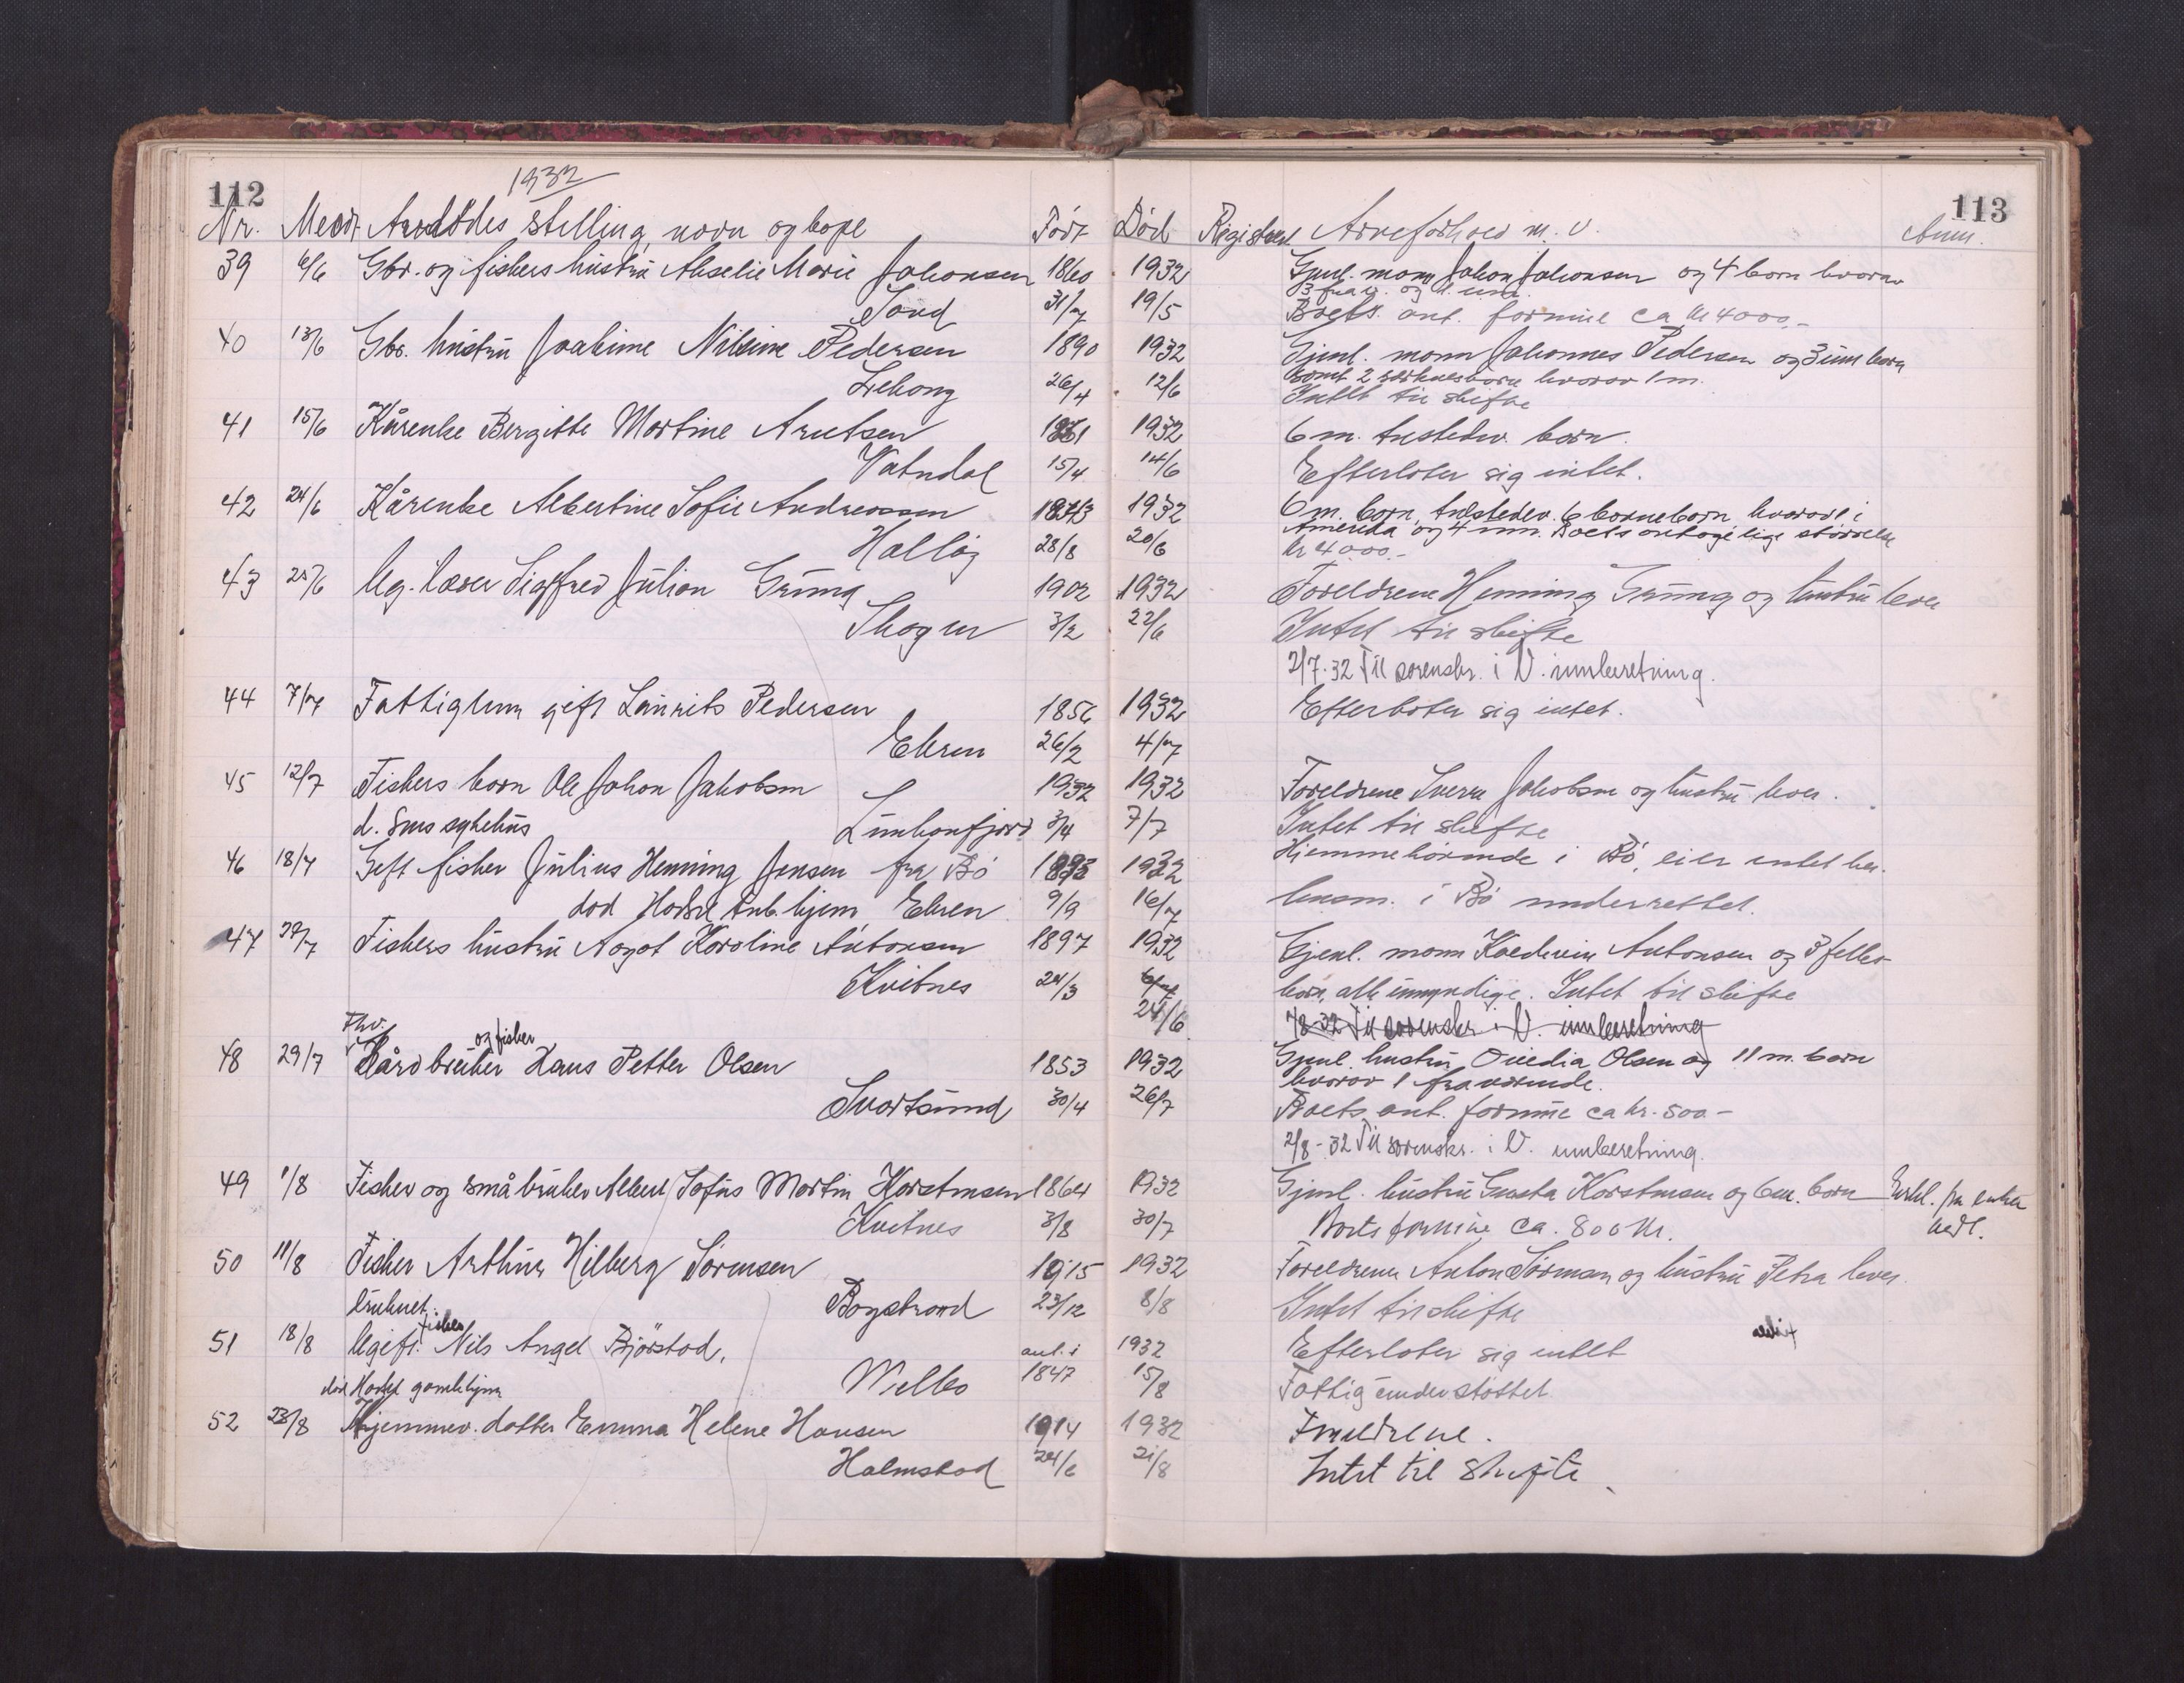 112
1932
113
Nr. Medt. Avdødes stilling, navn og bopel Født Død Registrert Arveforhold m. v. Anm.
39 6/6 Gbr. og fiskers hustru Akselie Marie Johansen 1860 1932 Gjenl. mann Johan Johansen og 4 born hvorav
3 frav. og 1 um.
Sand 31/7 19/5 Boets ant. formue ca kr 4000,-
40 13/6 Gbr. hustru Joakime Nilsine Pedersen 1890 1932 Gjenl. mann Johannes Pedersen og 3 um born
samt 2 særkulsborn hvorav 1 m.
26/4 12/6 Intet til skifte
41 15/6 Kårenke Bergitte Martine Arntsen 1861 1932 6 m. tilstedev. born.
Vatndal 15/4 14/6 Efterlater sig intet.
42 24/6 Kårenke Albertine Sofie Andreassen 1843 1932 6 m. born, tilstedev. 6 borneborn hvorav 1 i
Amerika og 4 um. Boets antagelige størrelse
28/8 20/6 kr 4000.-
43 25/6 Ug. lærer Sigffred Julian Grüng 1902 1932 Foreldrene Henning Grüng og hustru lever
Skogen 3/2 22/6 Intet til skifte
2/7-32 Til sorenskr. i V. innberetning.
44 7/7 Fattiglem gift Laurits Pedersen 1856 1932 Efterlater sig intet.
Ekren 26/2 4/7
45 12/7 Fiskers barn Ole Johan Jakobsen 1932 1932 Foreldrene Sverre Jakobsen og hustru lever.
d. Sms sykehus Lunkanfjord 3/4 7/7 Intet til skifte
46 18/7 Gift fisker Julius Henning Jensen fra Bø 1893 1932 Hjemmehørende i Bø, eier intet her.
død Hadsel tub. hjem Ekren 9/9 16/7 lensm. i Bø underrettet.
47 22/7 Fiskers hustru Aagot Karoline Antonsen 1897 1932 Gjenl. mann Kaldevin Antonsen og 3 felles
Kvitnes 24/3 born, alle umyndige. Intet til skifte
24/6 1/8-32 Til sorenskr. i V. innberetning
Fhv.
og fisker
48 29/7 Gårdbruker Hans Petter Olsen 1853 1932 Gjenl. hustru Ovedia Olsen og 11 m. born
hvorav 1 fraværende.
Svartsund 30/4 26/7 Boets ant. formue ca kr. 500-
2/8-32 Til sorenskr. i V. innberetning.
49 1/8 Fisker og småbruker Albert Sofus Martin Horstmsen 1864 1932 Gjenl. hustru Gusta Horstmsen og 6 m. born Erkl. fra enken
Kvitnes 3/8 30/7 Boets formue ca. 800 kr. vedl.
50 11/8 Fisker Arthur Hilberg Sørensen 1915 1932 Foreldrene Anton Sørensen og hustru Petra lever.
druknet. Bogstrand 23/12 8/8 Intet til skifte
fisker
51 18/8 Ugift. Nils Angel Bjørstad, ant. i 1932 Efterlater sig intet
død Hadsel gamlehjem Melbo 1847 15/8 Fattigunderstøttet
52 23/8 Hjemmev. datter Emma Helene Hansen 1914 1932 Foreldrene.
Holmstad 24/6 21/8 Intet til skifte